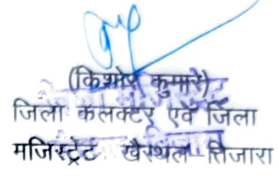 (किशोर कुमार)
जिला कलक्टर एवं जिला
मजिस्ट्रेट खैरथल तिजारा